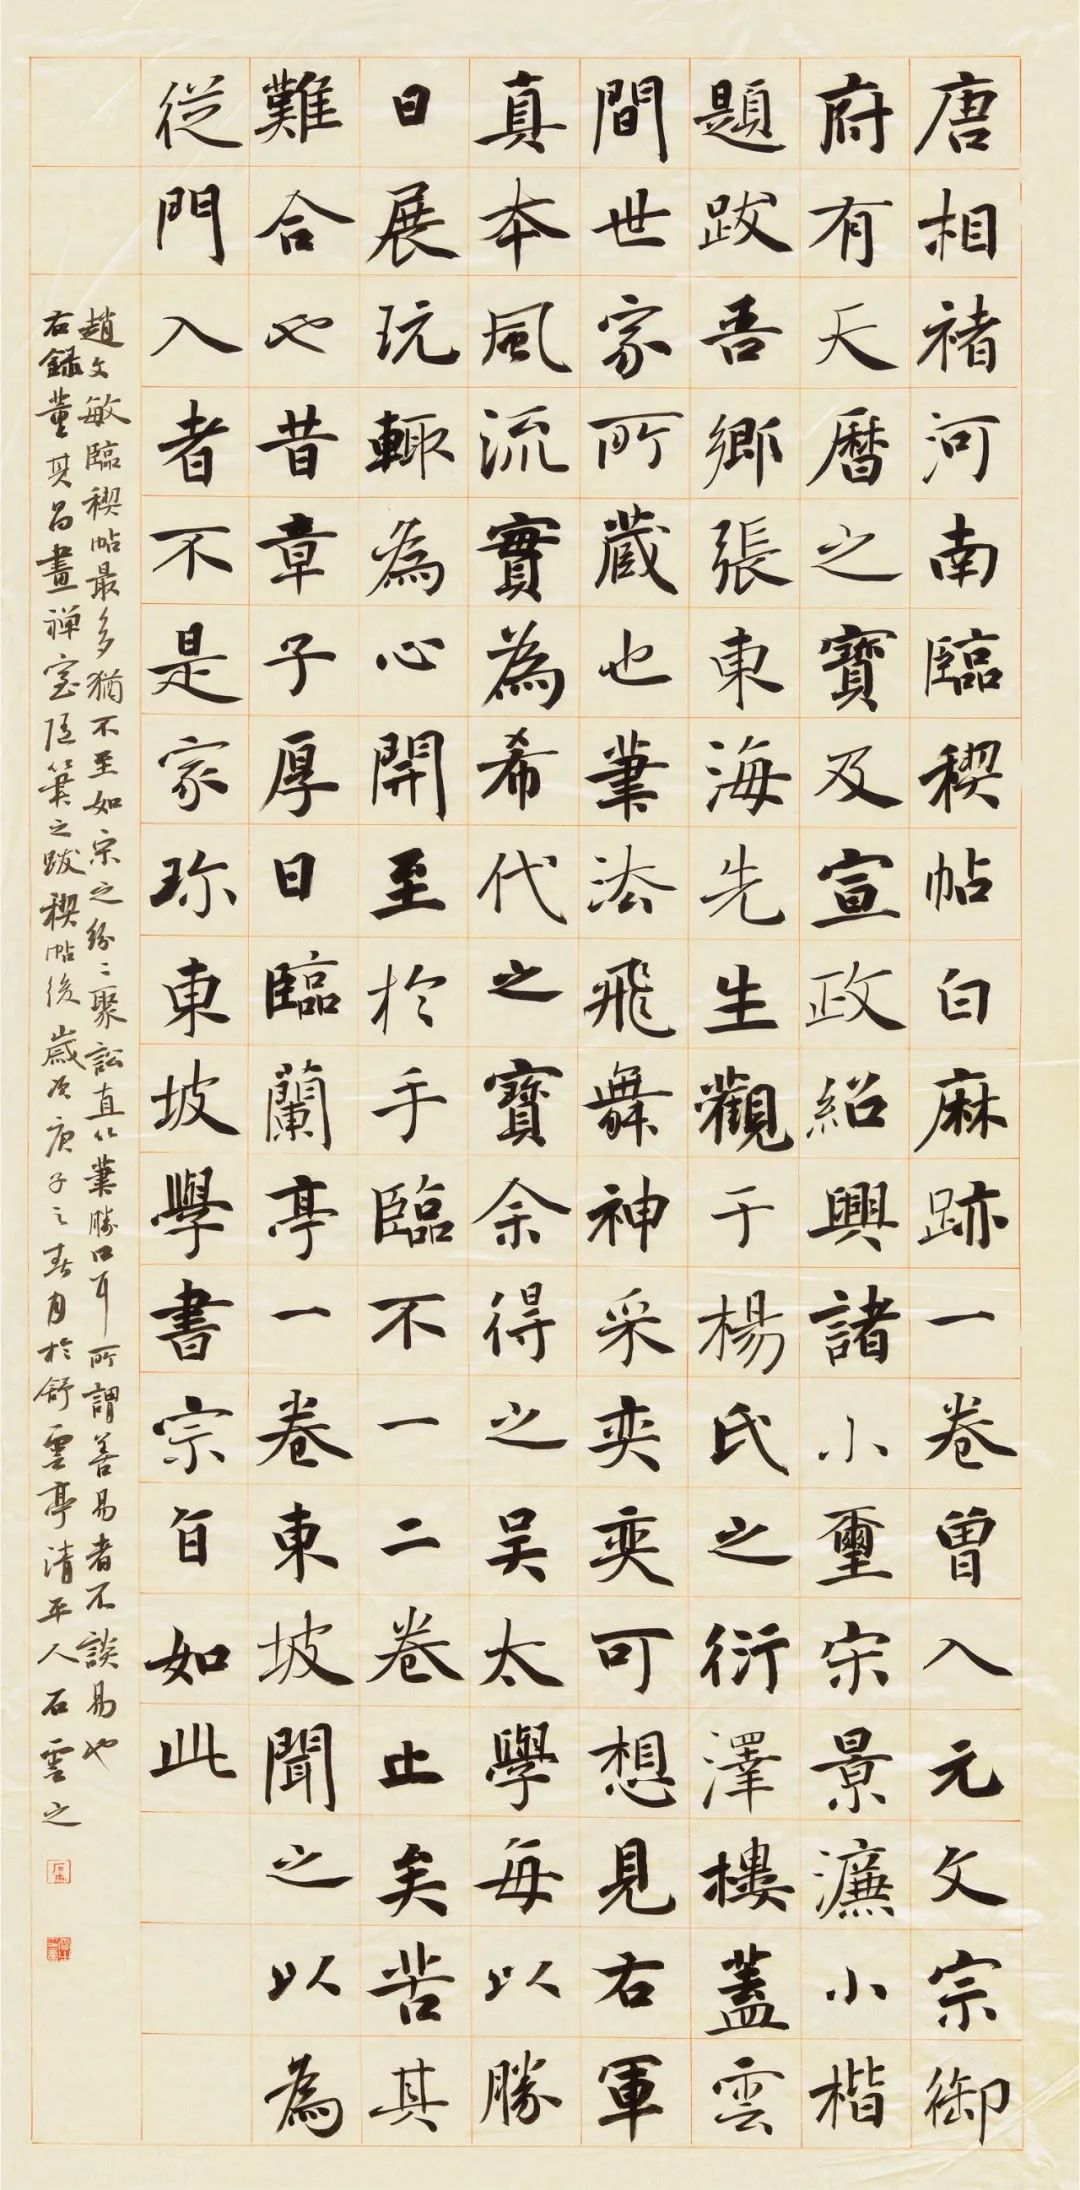 唐相褚河南臨禊帖白麻跡一卷曾入元文宗御
府有天曆之寶及宣政紹興諸小璽宋景濂小楷
題跋吾鄉張東海先生觀于楊氏之衍澤樓蓋雲
間世家所藏也筆法飛舞神采奕奕可想見右軍
真本風流實為希代之寶余得之吳太學每以勝
日展玩輒為心開至於手臨不一二卷止矣苦其
難合也昔章子厚日臨蘭亭一卷東坡聞之以為
從門入者不是家珎東坡學書宗旨如此
趙文敏臨禊帖最多猶不至如宋之紛二聚訟直以筆勝口耳所謂善易者不談易也
右錄董其昌畫禅室隨筆之跋禊帖後歲次庚子之春月於舒雲亭清平人石雲之